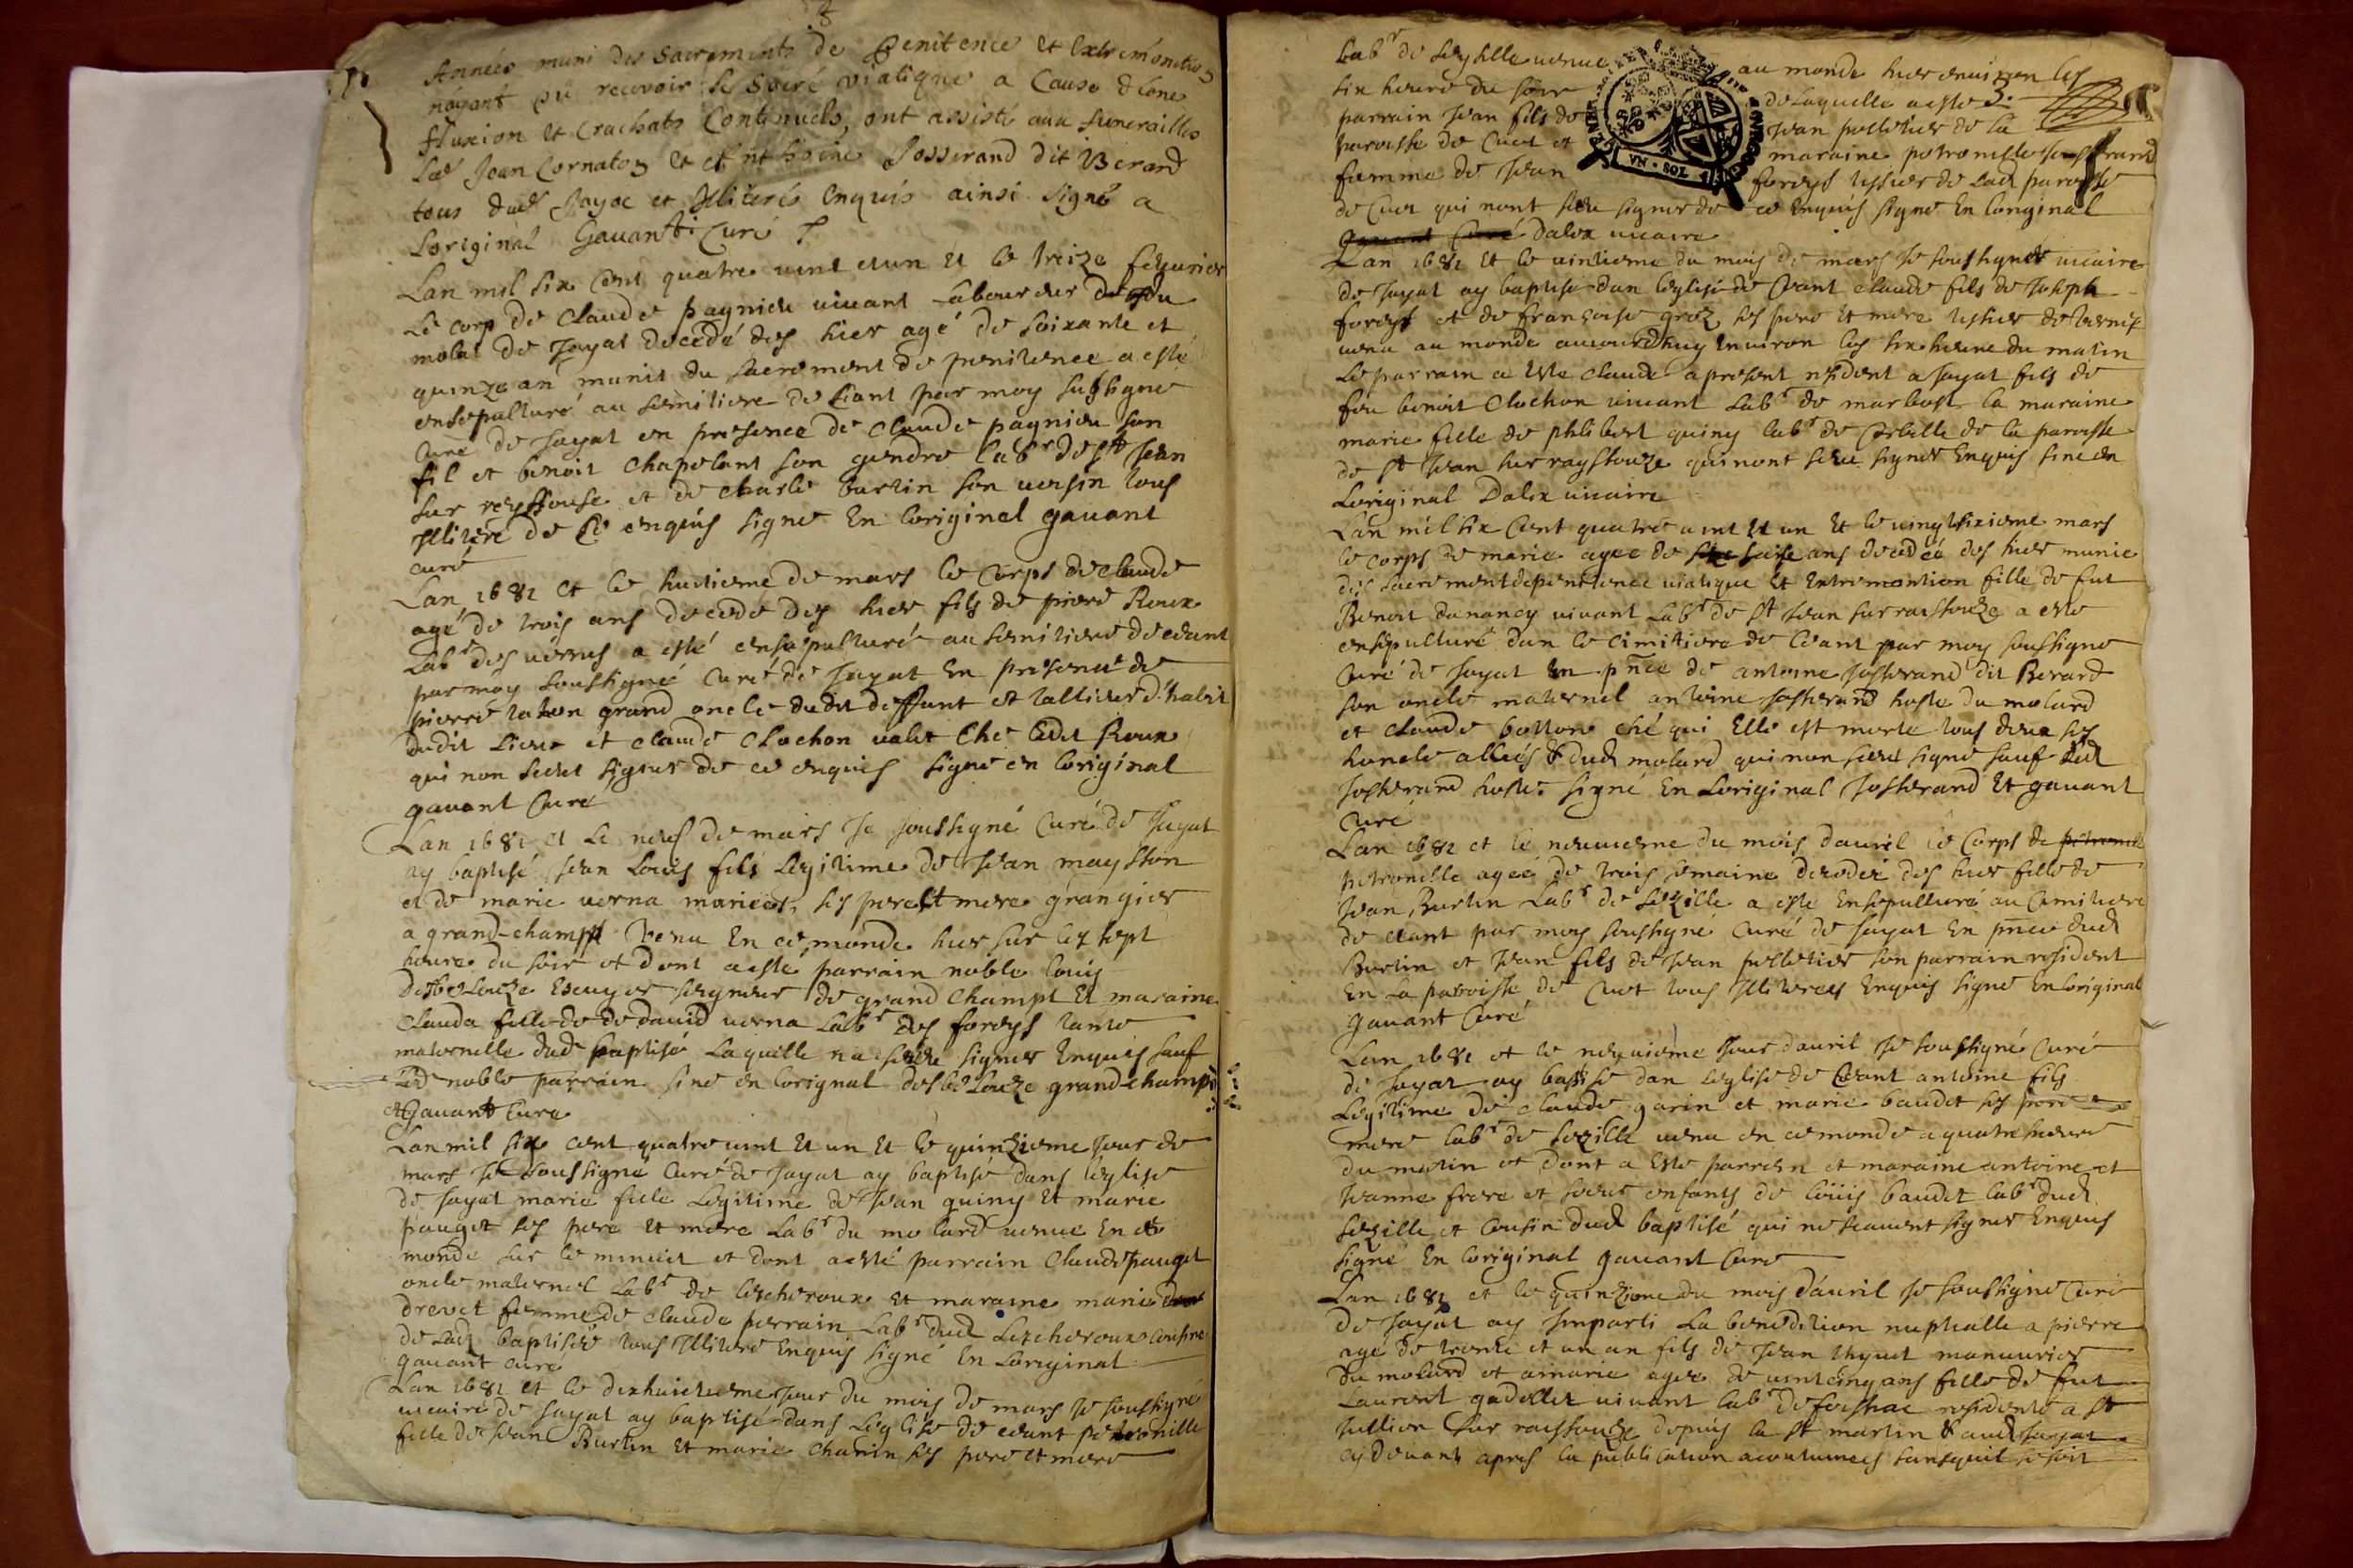 Années muni des Sacrements de Penitence et Extremontion
nayant pu recevoir le Sacré viatique a Cause dune
fluxion et Crachats Continuels, ont assisté aux funerailles
Jean Cornaton et Anthoine Josserand dit Berard
tous dud Jayac et Illiterés Enquis ainsi Signé a
Loriginal Gavant Curé
Lan mil six Cent quatre vint et un et le treize feburier
Le corp de Claude pagnieu vivant Laboureur du
molar de Jayat decedé des hier agé de soixante et
quinze an munit du sacrement de penitence a esté
ensepulturé au semitiere de Ceant par moy subsigne
Curé de Jayat en presence de Claude pagnieu son
fil et benoit Chapelant son gendre labr de st Jean
sur reyssouse et de Charle burtin son voisin tous
Illiteré de Ce enquis signe En loriginel gavant
curé
Lan 1681 et le huitieme de mars le Corps de Claude
agé de trois ans decedé des hier fils de piere Roux
Labr des vernes a esté ensepulturé au semitiere de ceant
par moy soussigné Curé de Jayat En presence de
pierre grand oncle dudit deffunt et tallieur d'habit
dudit Lieu et Claude Clochon valet Che Ledit Roux
qui non sceu signer de ce enquis signe en loriginal
gavant Curé
Lan 1681 et Le neuf de mars Je soussigné Curé de Jayat
ay baptisé Jean Louis fils Legitime de Jean maysson
et de marie verna mariees, ses pere Et mere grangier
a grand-champt Venu En ce monde hier sur les sept
heure du soir et dont a esté parrain noble louis
Escuyer seigneur de grand Champt Et maraine
Clauda fille de de david verna Labr des foreys tante
maternelle dud baptisé Laquelle na sceu signer Enquis sauf
Led noble parrain sine en lorignal grandchamp
et Gavant Cure
Lan mil six cent quatre vint Et un Et le quinzieme Jour de
mars Je soussigné Curé de Jayat ay baptisé dans leglise
de Jayat marie fille Legitime de Jean quiny Et marie
pauget ses pere Et mere Labr du molard venue En ce
monde sur le minuit et dont a esté parrain Claude pauget
oncle maternel Labr de lescheroux Et maraine marie
drevet femme de Claude perrain Labr dud Lescheroux Cousine
de Lad baptisée tous Illiteré Enquis signé En Loriginal
gavant curé
Lan 1681 et le dixhuictieme Jour du mois de mars Je soussigné
vicaire de Jayat ay baptisé dans Leglise de ceant petronille
fille de Jean Burtin Et marie Chanin ses pere et mere
Labr de Sezille venue au monde hier environ les
six heure du soir de Laquelle a esté
parrain Jean fils de Jean pelletier de la
paroisse de Cuet et maraine petronille Josserand
femme de Jean foreys tissier de Lad paroisse
de Cuet qui nont sceu signer de ce Enquis signe En loriginal
gavant Curé Dalex vicaire
Lan 1681 Et le vintieme du mois de mars Je soussigné vicaire
de Jayat ay baptisé dan leglise de Ceant Claude fils de Joseph
foreys et de françoise groz ses pere Et mere tissier de
venu au monde aujourdhuy Environ les six heure du matin
Le parrain a Este Claude apresent resident a Jayat fils de
feu benoit Clochon vivant Labr de marbost la maraine
marie fille de philibert quiny labr de Corbelle de la paroisse
de st Jean sur rayssouze qui nont sceu signer Enquis sine en
Loriginal Dalex vicaire
Lan mil six Cent quatre vint Et un Et le vingt sixieme mars
le corps de marie agee de seise ans decedée des hier munie
des sacrement de penitence viatique Et Extremontion fille de fut
Benoit danancy vivant Labr de st Jean sur raissouze a esté
ensepulturé dan le Cimitiere de Ceant par moy soussigne
Curé de Jayat En pnce de antoine Josserand dit Berard
son oncle maternel antoine Josserand hoste du molard
et Claude botton ché qui Elle est morte tous deux ses
honcle alliés & dud molard qui non sceu signé sauf Led
Josserand hoste signé En Loriginal Josserand Et gavant
Curé
Lan 1681 et le neuvieme du mois davril le Corps de petronill
petronille agée de trois semaine decedée des hier fille de
Jean Burtin Labr de Sezille a esté Ensepulturé au Cimitiere
de Ceant par moy soussigné Curé de Jayat En pnce dud
Burtin et Jean fils de Jean pelletier son parrain resident
En La paroisse de Cuet tous Illiterés Enquis signé En loriginal
gavant Curé
Lan 1681 et le neuvieme Jour davril Je soussigné Curé
de Jayat ay baptise dan leglise de Ceant antoine fils
Legitime de Claude garin et marie baudet ses pere et
mere labr de Sezille venu en ce monde a quatre heure
du matin et dont a Este parrein et maraine antoine et
Jeanne frere et soeur enfants de loüis baudet labr dud
Sezille et Cousin dud baptisé qui ne sçavent signer Enquis
signé En loriginal gavant Curé
Lan 1681 et le quinzieme du mois d'avril Je soussigné Curé
de Jayat ay Imparti La benediction nuptialle a pierre
agé de trente et un an fils de Jean thynet manouvrier
du molard et a marie agee de vint cinq ans fille de fut
Laurent gadollet vivant labr de foissiac residente a st
Jullien sur raissouze depuis la st martin & aud Jayat
cy devant apres la publication acoutumees sansquil se soit